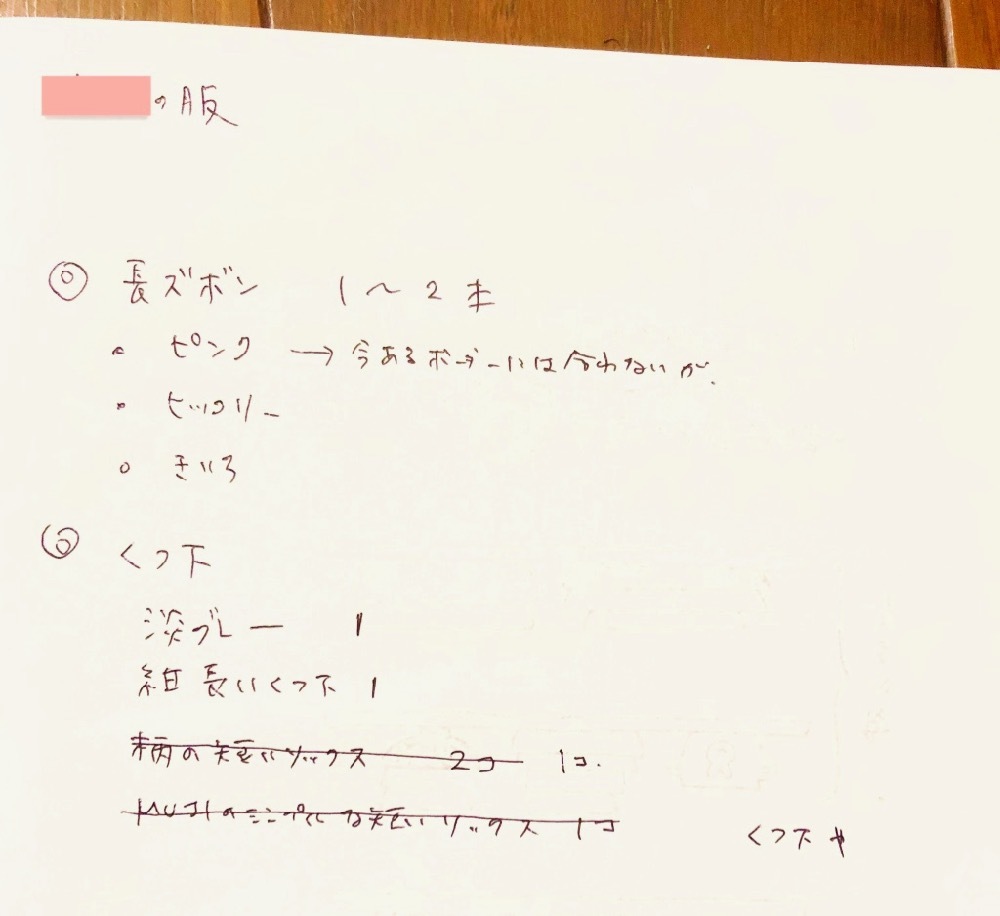 の服
◎ 長ズボン 1〜2本
・ ピンク → 今あるボーダーには合わないが、
・
○ きいろ
◎ くつ下
淡グレー 1
紺 長いくつ下 1
柄の短いソックス 2コ 1コ.
MUJIのシンプルな短いソックス 1コ
くつ下